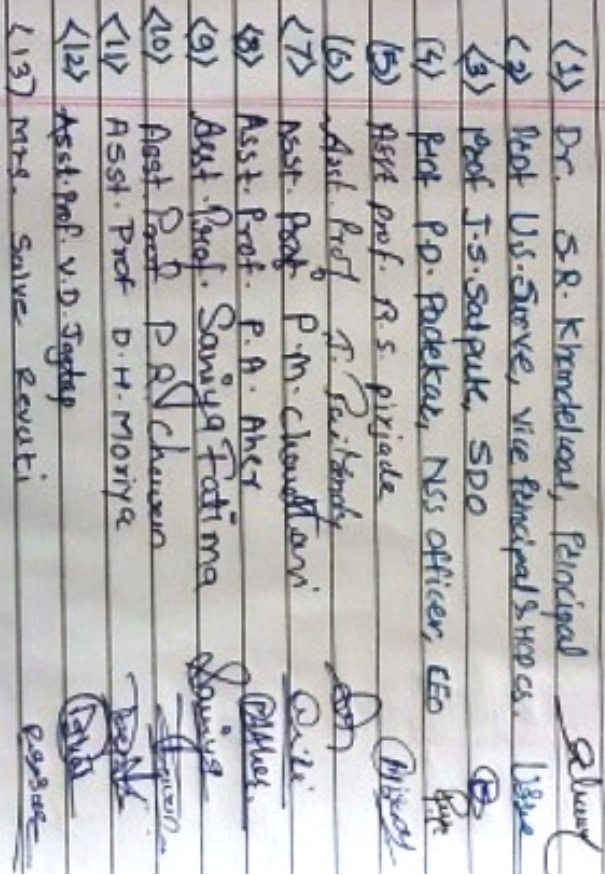 (1) Dr. S.R. Khandelwal, Principal
(2) Prof U.S. Surve, Vice Principal & HOD CS.
(3) Prof J.S. Satpute, SDO
(4) Prof P.D. Padekar, NSS Officer, CEO
(5) Asst prof. R.S. pirjade
(6) Asst. Prof J.
(7) Asst. Prof P.M. Chowdhari
(8) Asst. Prof. P.A. Aher PAAher.
(9) Asst. Prof. Saniya Fatima Saniya
(10) Asst Prof P R
(11) Asst. Prof D.H. Moriya
(12) Asst. Prof. V.D. Jagtap
(13) Mrs. Salve Revati